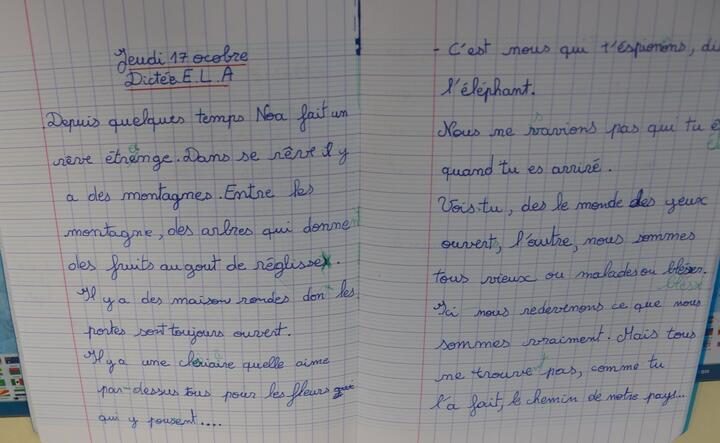 Jeudi 17 ocobre
Dictée E.L.A
Depuis quelques temps Noa fait un
rêve étrange. Dans se rêve il y
a des montagnes. Entre les
montagne, des arbres qui donne
des fruits au gout de réglisse.
Il y a des maison rondes don les
portes sont toujours ouvert.
Il y a une clairiaire quelle aime
par-dessus tous pour les fleurs
qui y pousent....
- C'est nous qui t'éspionons, di
l'éléphant.
Nous ne savions pas qui tu
quand tu es arrivé.
Vois-tu, des le monde des yeux
ouvert, l'autre, nous sommes
tous vieux ou malades ou
Ici nous redevenons ce que nous
sommes vraiment. Mais tous
ne trouve pas, comme tu
l'a fait, le chemin de notre pays...